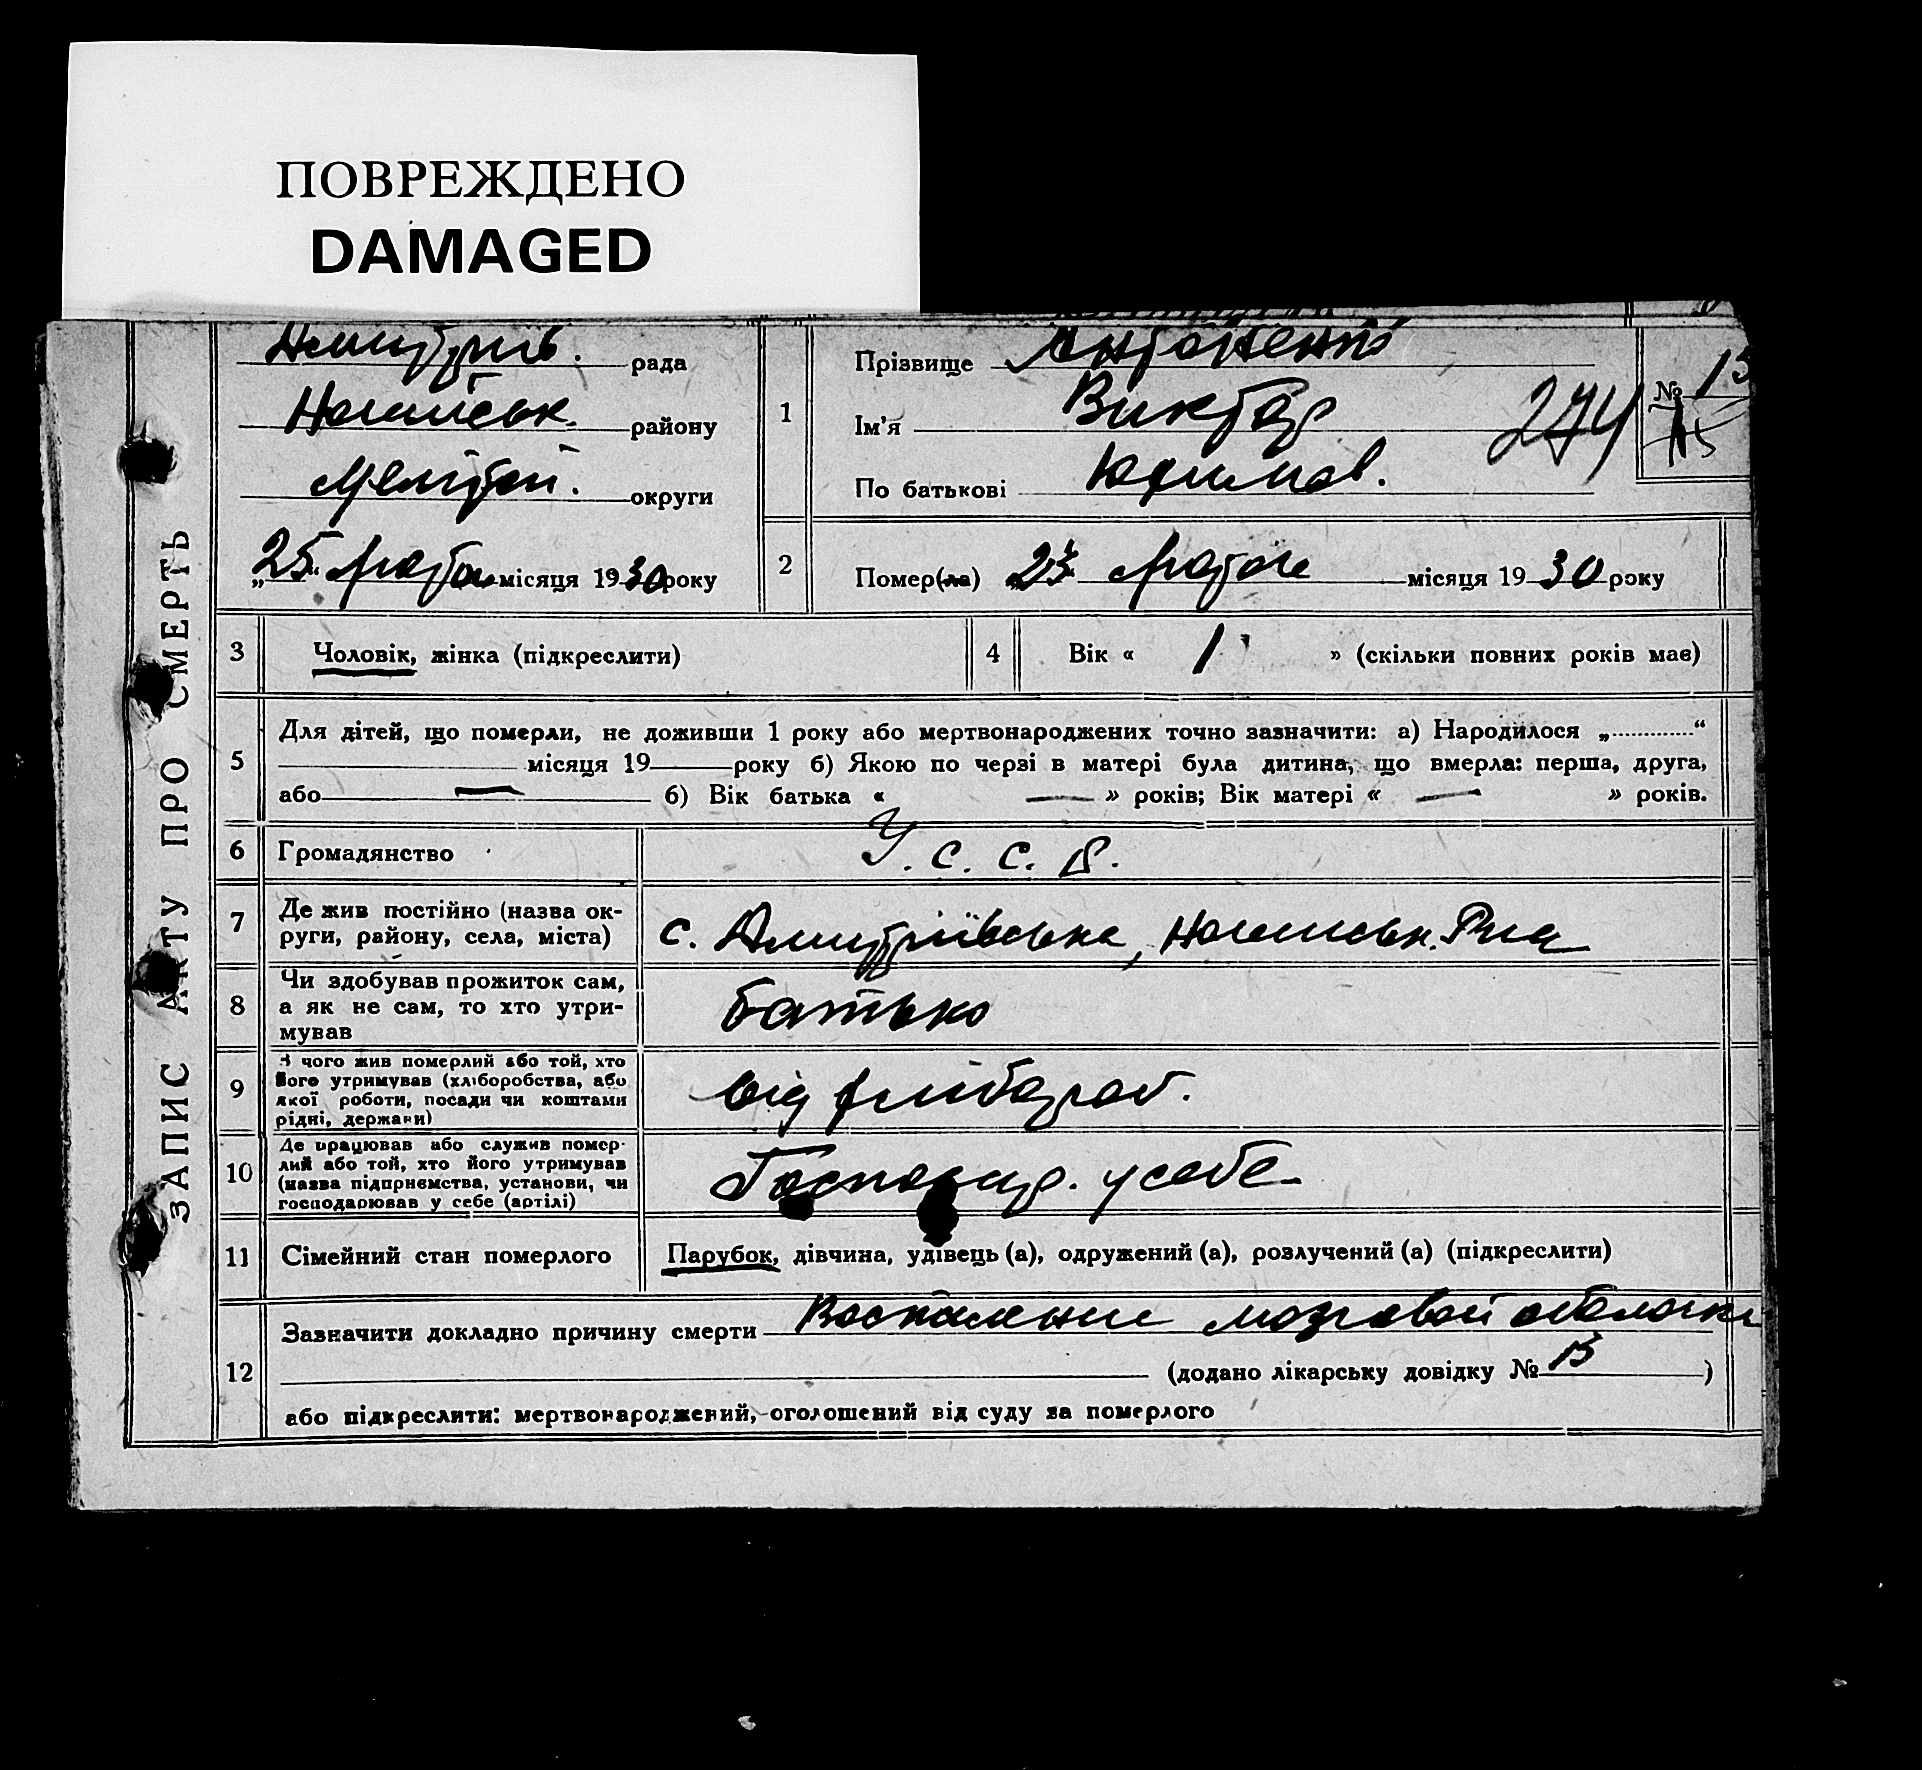 ПОВРЕЖДЕНО
DAMAGED
ЗАПИС АКТУ ПРО СМЕРТЬ
Дмитрів. рада
Ногайськ. району
Мелітоп. округи
„25“ лютого місяця 1930 року
1
Прізвище Антоненко
Ім'я Виктор
По батькові Юхимов.
274
№ 13
15
2
Помер(ла) 23 лютого місяця 1930 року
3 Чоловік, жінка (підкреслити)
4 Вік « 1 » (скільки повних років має)
5
Для дітей, що померли, не доживши 1 року або мертвонароджених точно зазначити: а) Народилося „............“
місяця 19 року б) Якою по черзі в матері була дитина, що вмерла: перша, друга,
або — б) Вік батька « — » років; Вік матері « — » років.
6 Громадянство У. С. С. Р.
7
Де жив постійно (назва ок-
руги, району, села, міста)
с. Дмитріївська, Ногайськ. Р-на
8
Чи здобував прожиток сам,
а як не сам, то хто утри-
мував
батько
9
З чого жив померлий або той, хто
його утримував (хліборобства, або
якої роботи, посади чи коштами
рідні, держави)
від хлібороб.
10
Де працював або служив помер-
лий або той, хто його утримував
(назва підприємства, установи, чи
господарював у себе (артілі)
Господар. у себе
11 Сімейний стан померлого Парубок, дівчина, удівець (а), одружений (а), розлучений (а) (підкреслити)
12
Зазначити докладно причину смерти Воспаление мозговой оболочки
(додано лікарську довідку № 13 )
або підкреслити: мертвонароджений, оголошений від суду за померлого